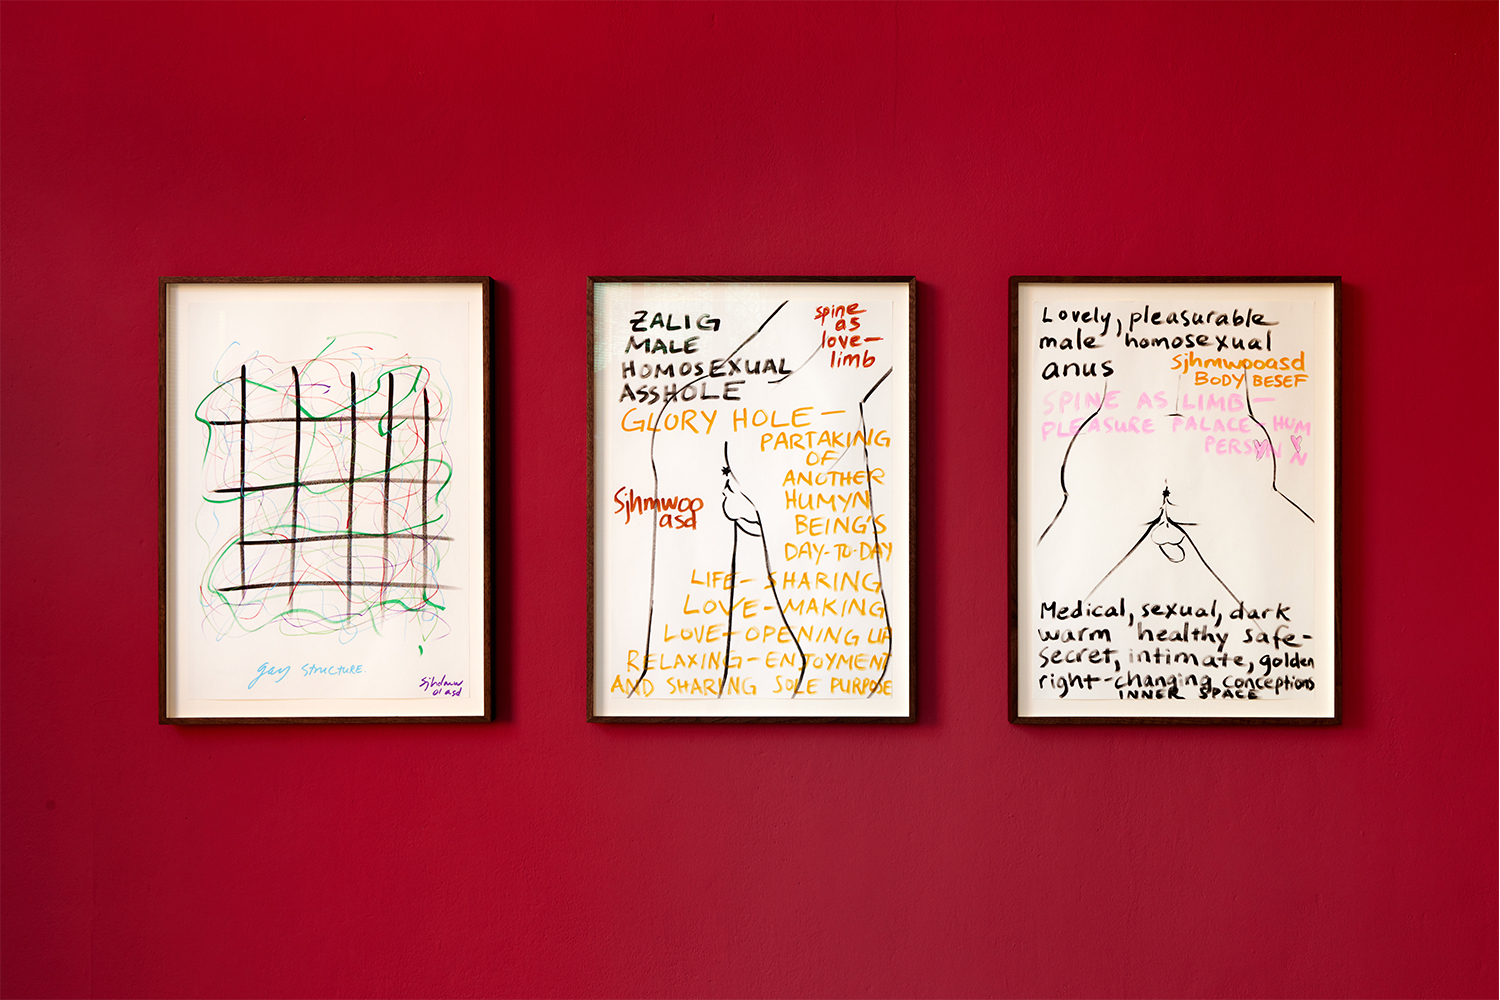 gay STRUCTURE.
ZALIG
MALE
HOMOSEXUAL
ASSHOLE
spine
as
love—
limb
GLORY HOLE —
PARTAKING
OF
ANOTHER
HUMYN
BEING'S
DAY-TO-DAY
Sjhmwoo
asd
LIFE - SHARING
LOVE - MAKING
LOVE - OPENING UP
RELAXING - ENJOYMENT
AND SHARING SOLE PURPOSE
Lovely, pleasurable
male homosexual
anus
Sjhmwooasd
BODY BESEF
SPINE AS LIMB —
PLEASURE PALACE - HUM
Medical, sexual, dark
warm healthy safe-
secret, intimate, golden
right-changing conceptions
INNER SPACE